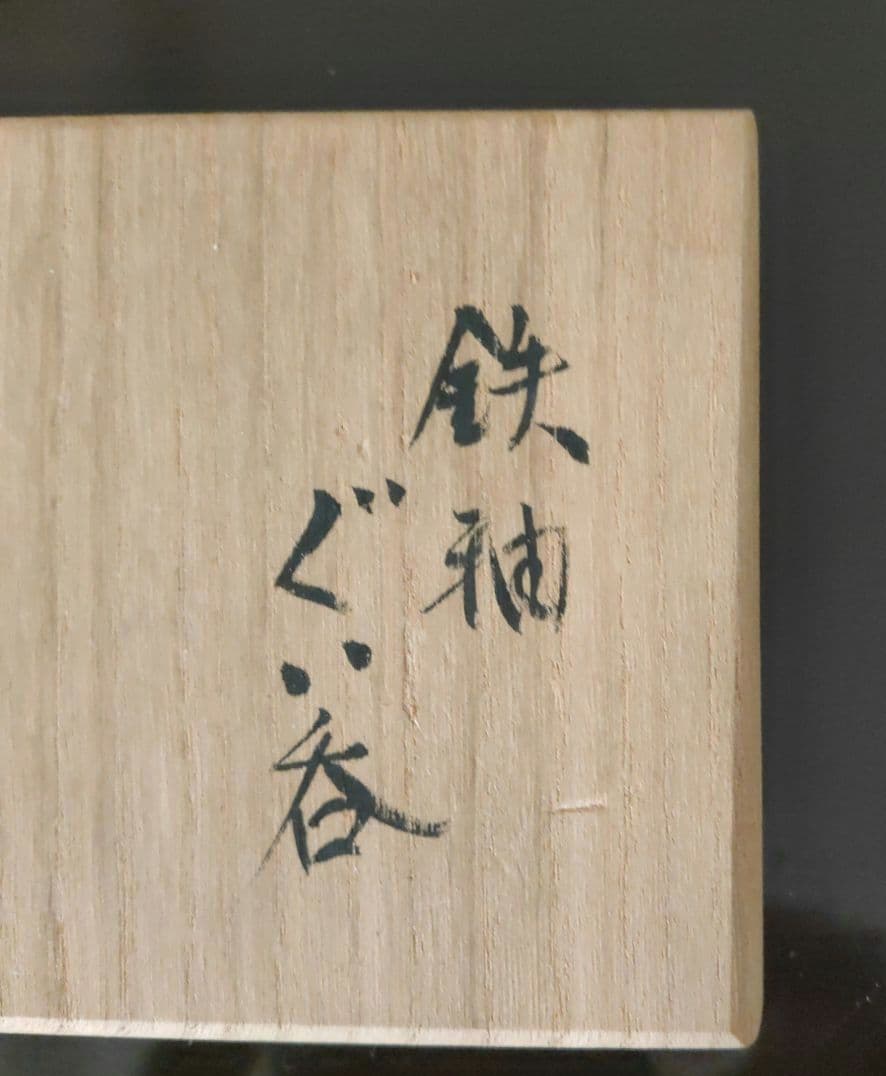 鉄釉
ぐい呑